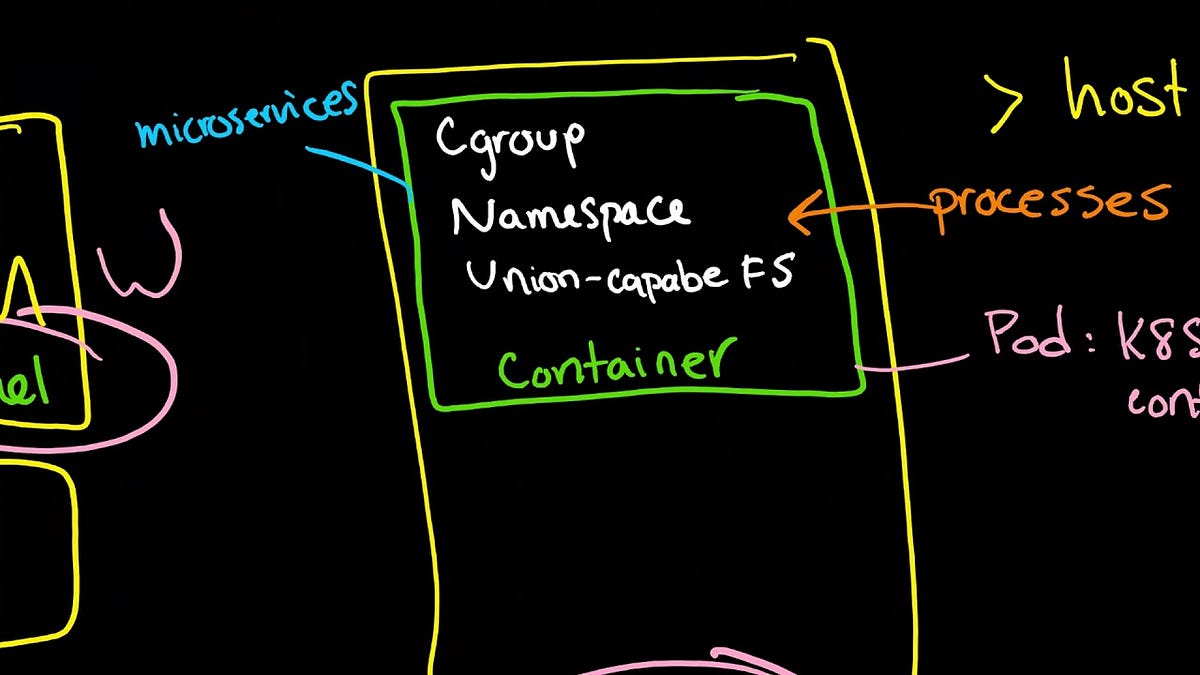 microservices
Cgroup
Namespace
Union-capabe FS
Container
> host
processes
Pod: K8S
cont
W
el